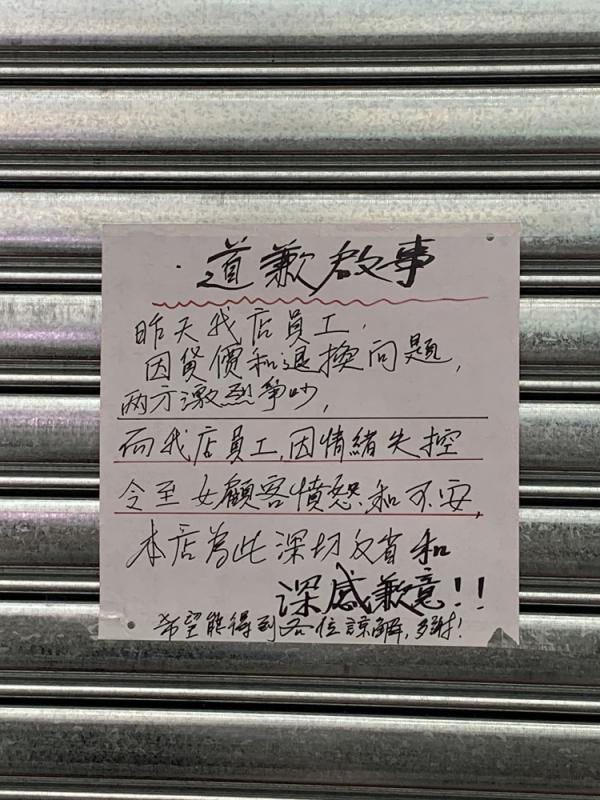 道歉啟事
昨天我店員工,
因貨價和退換問題,
兩方激烈爭吵,
而我店員工,因情緒失控
令至女顧客憤怒和不安,
本店為此深切反省和
深感歉意!!
希望能得到各位諒解,多謝!